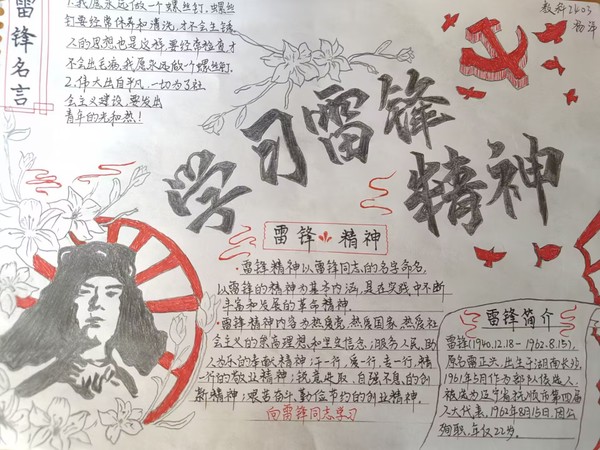 雷锋名言
1.我愿永远做一个螺丝钉.螺丝
钉要经常保养和清洗,才不会生锈.
人的思想也是这样,要经常检查才
不会出毛病.我愿永远做一个螺丝钉.
2.伟大出自平凡,一切为了社
会主义建设,要发出
青年的光和热!
教科2403
学习雷锋
精神
雷锋 精神
·雷锋精神以雷锋同志的名字命名,
以雷锋的精神为基本内涵,且在实践中不断
丰富和发展的革命精神.
·雷锋精神内容为热爱党,热爱国家,热爱社
会主义的崇高理想和坚定信念;服务人民,助
人为乐的奉献精神;干一行,爱一行,专一行,精
一行的敬业精神;锐意进取,自强不息的创
新精神;艰苦奋斗,勤俭节约的创业精神.
向雷锋同志学习
雷锋简介
雷锋(1940.12.18—1962.8.15),
原名雷正兴,出生于湖南长沙,
1961年5月作为部队候选人,
被选为辽宁省抚顺市第四届
人大代表,1962年8月15日,因公
殉职,年仅22岁.